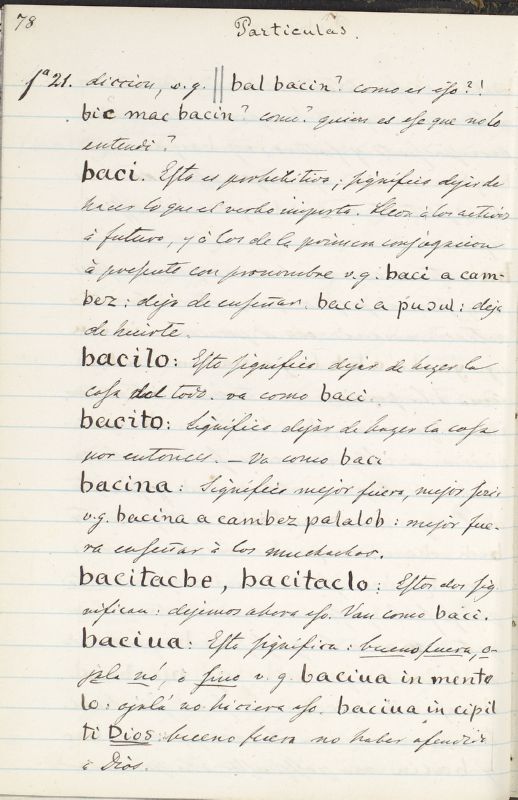 78
Particulas.
fª 21. diccion, v.g. || bal bacin? como es eso?!
bic mac bacin? como? quien es ese que no lo
entendi?
baci. Esto es prohibitivo; significa dejar de
hacer lo que el verbo importa. Lleva á los activos
á futuro, y á los de la primera conjugacion
á presente con pronombre v.g. baci a cam-
bez: deja de enseñar. baci a puɔul: deja
de huirte.
bacilo: Esto significa dejar de hazer la
cosa del todo. va como baci.
bacito: Significa dejar de hazer la cosa
por entonces. — Va como baci
bacina: Significa mejor fuera, mejor seria
v.g. bacina a cambez palalob: mejor fue-
ra enseñar á los muchachos.
bacitacbe, bacitaclo: Estos dos sig
nifican: dejemos ahora eso. Van como baci.
baciua: Esto significa: bueno fuera, o-
jala nó, o sino v.g. baciua in mento
lo: ojalá no hiciera eso. baciua in cipil
ti Dios: bueno fuera no haber ofendido
á Dios.